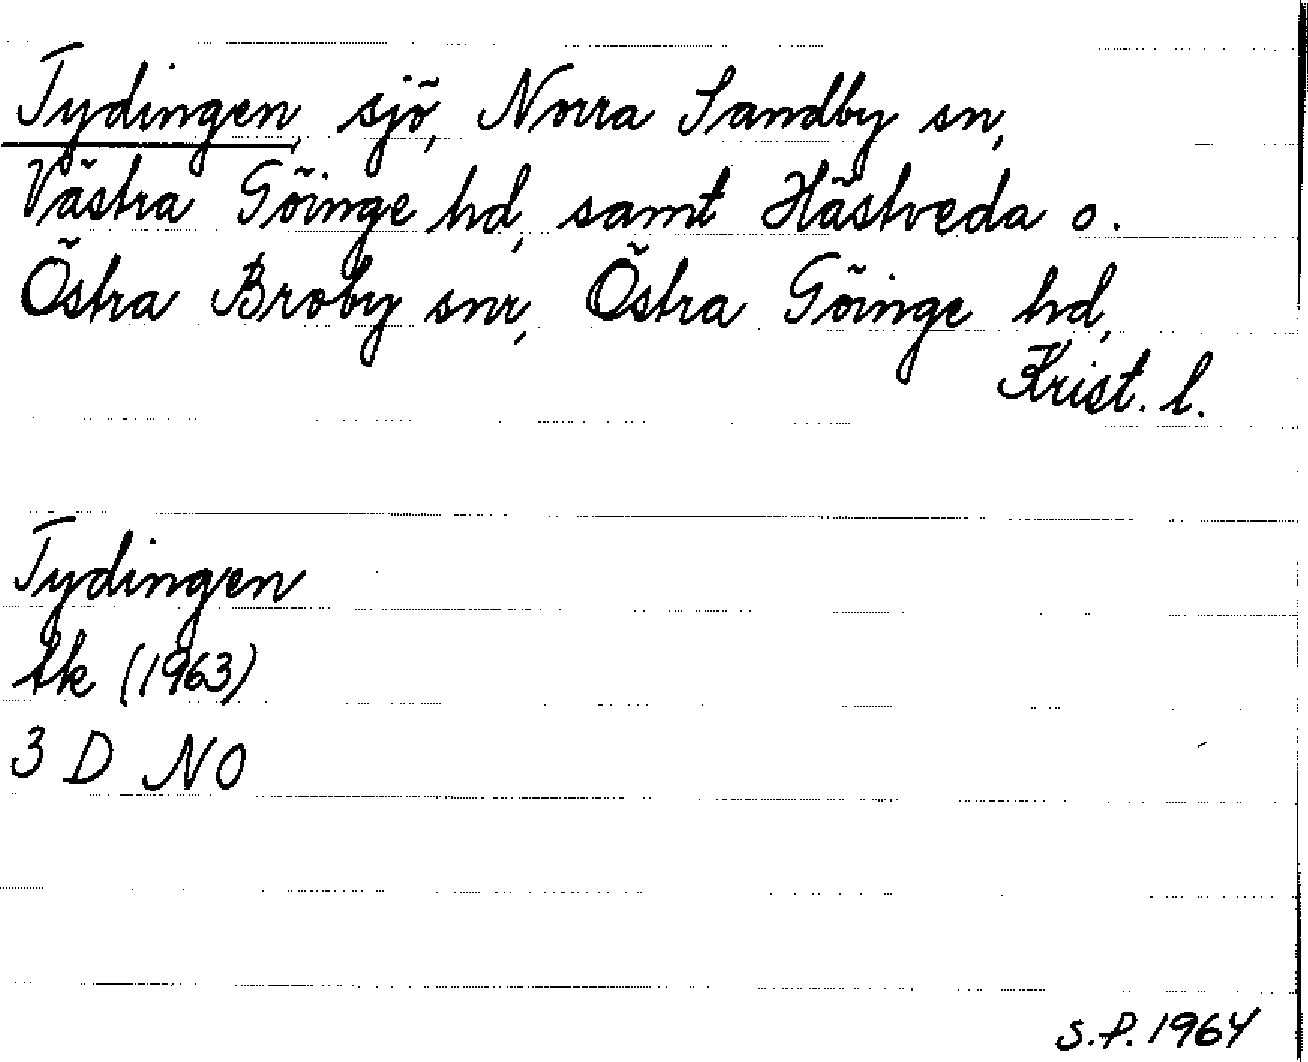 Tydingen, sjö, Norra Sandby sn,
Västra Göinge hd, samt Hästveda o.
Östra Broby snr, Östra Göinge hd,
Krist. l.
Tydingen
tk (1963)
3 D NO
S.P. 1964